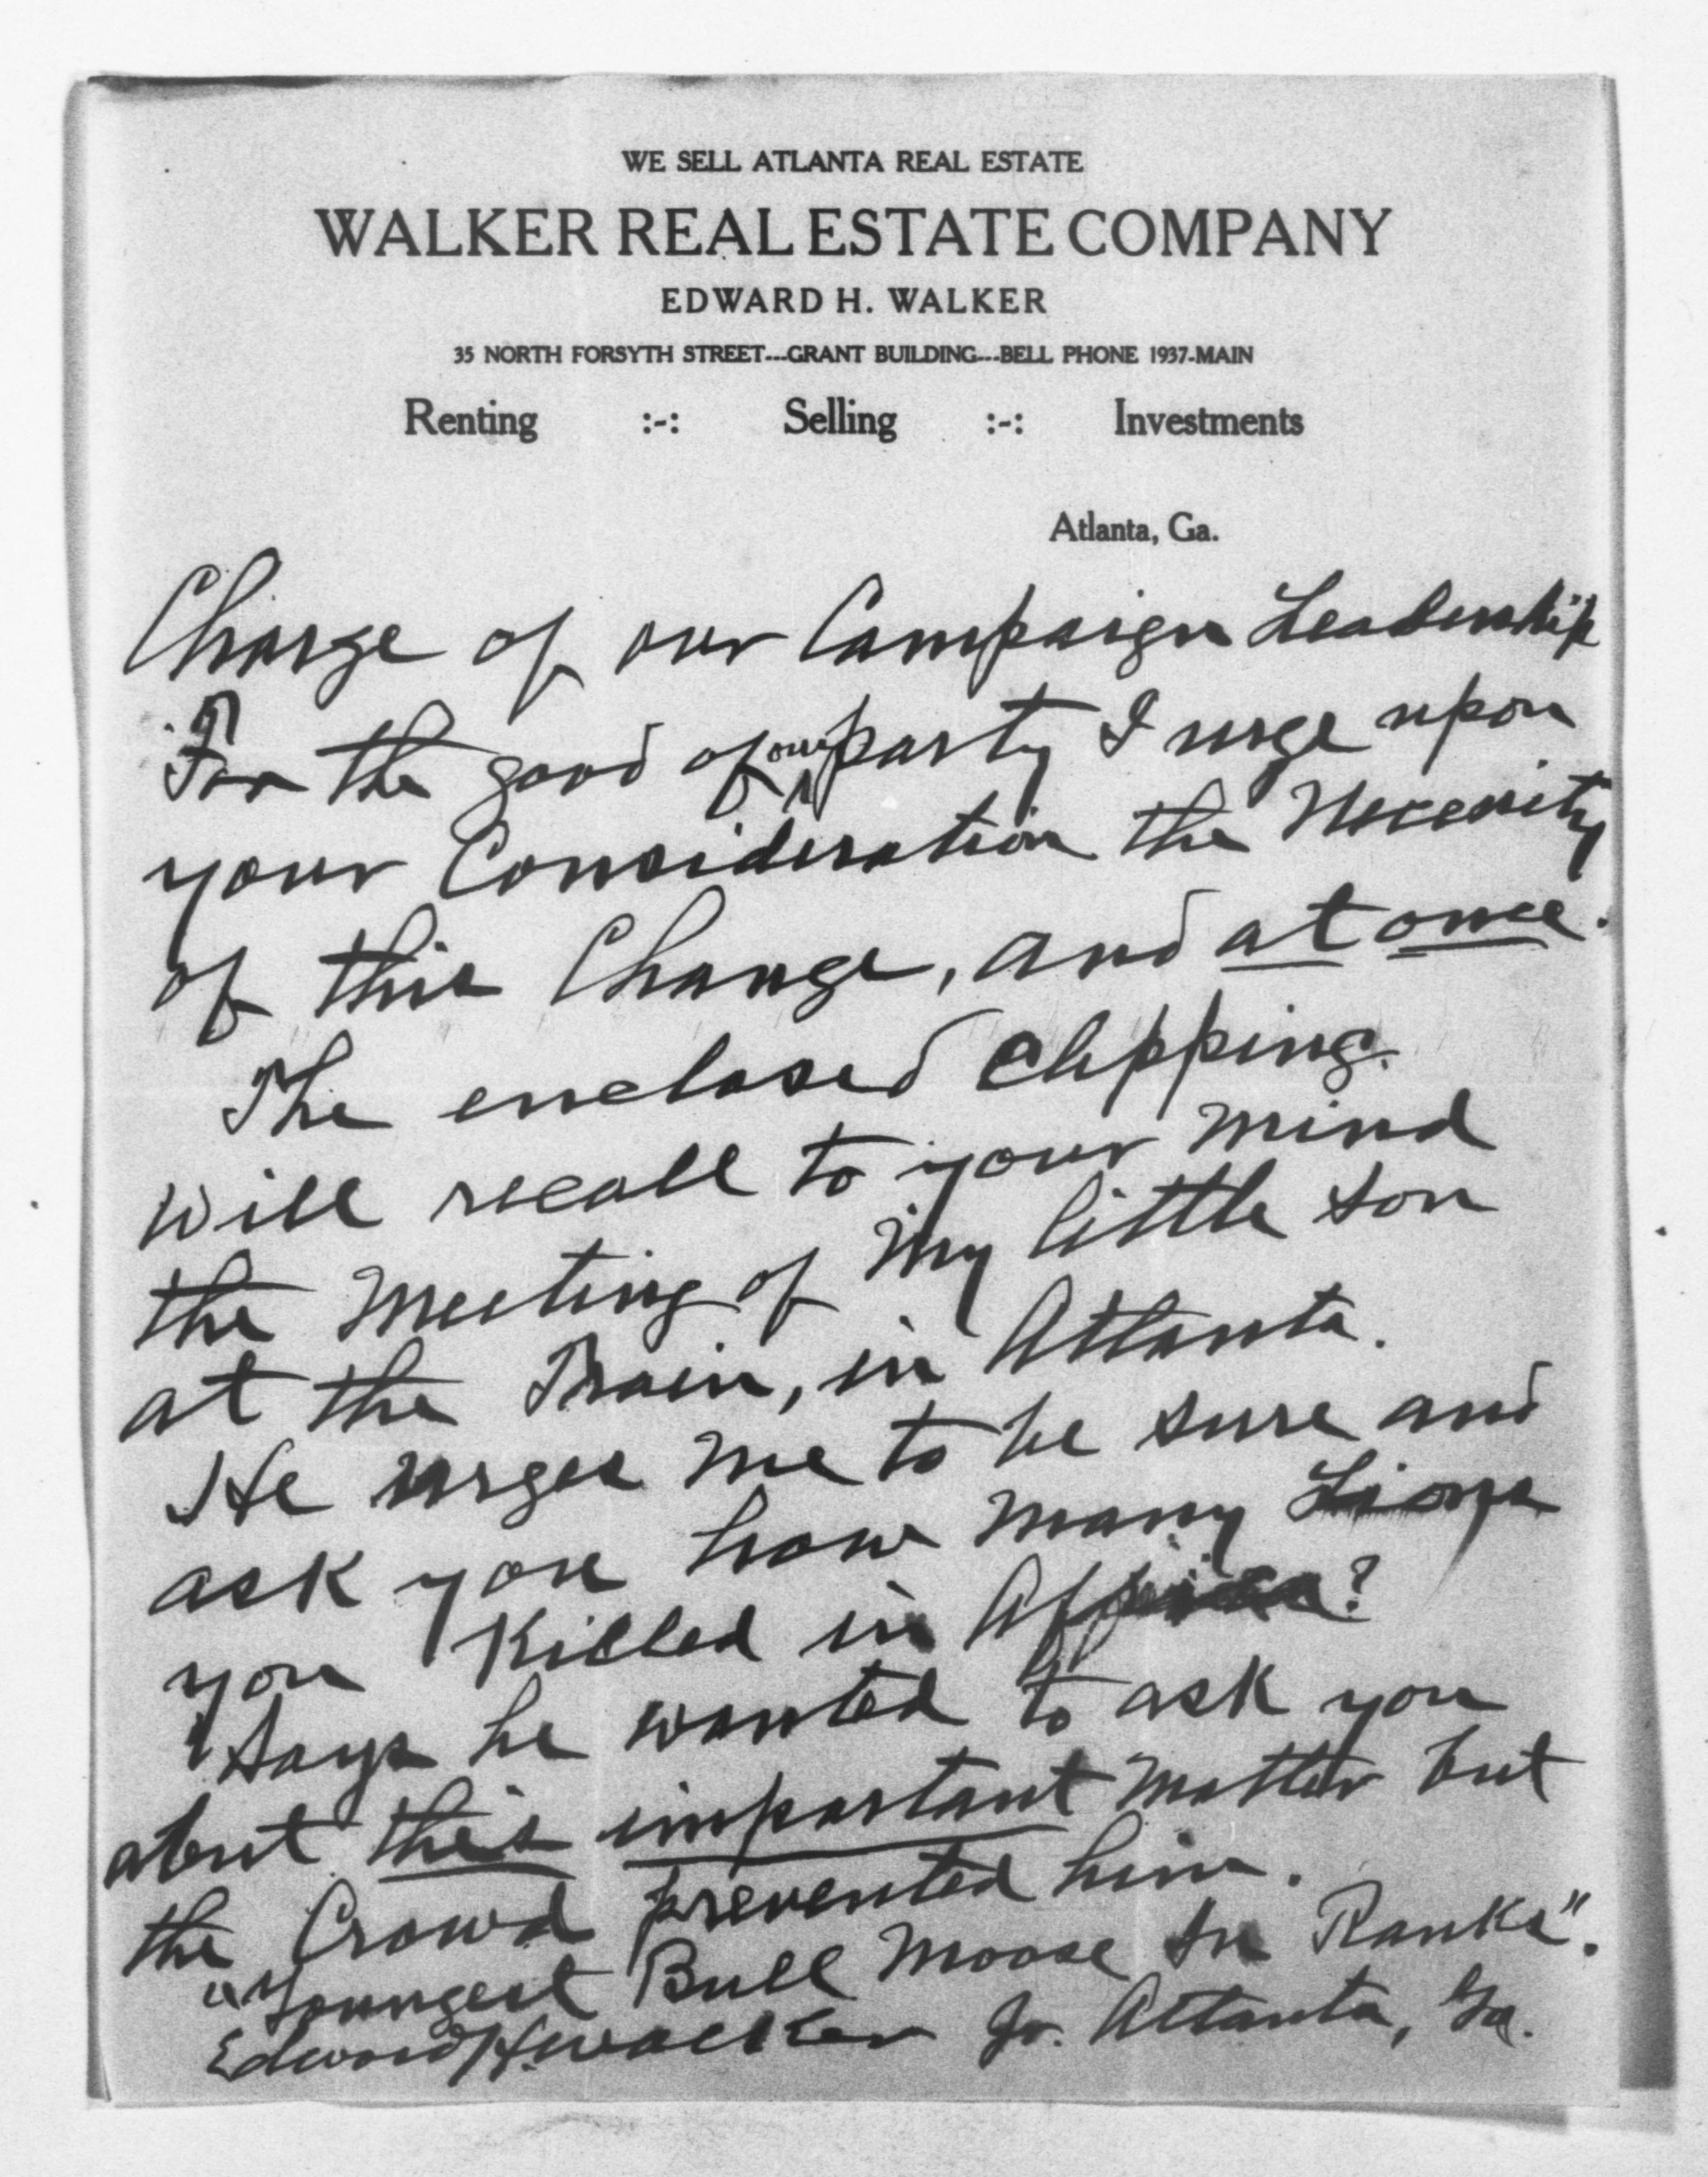 WE SELL ATLANTA REAL ESTATE
WALKER REAL ESTATE COMPANY
EDWARD H. WALKER
35 NORTH FORSYTH STREET---GRANT BUILDING---BELL PHONE 1937-MAIN
Renting :-: Selling :-: Investments
Atlanta, Ga.
Charge of our Campaign Leadership
For the good of our party I urge upon
your Consideration the Necessity
of this Change, and at once.
The enclosed Clipping
will recall to your mind
the Meeting of My little son
at the Train, in Atlanta.
He urges me to be sure and
ask you how many Lions
you Killed in Africa?
Says he wanted to ask you
about this important matter but
the Crowd prevented him.
"Youngest Bull Moose In Ranks".
Edward H. Walker Jr. Atlanta, Ga.